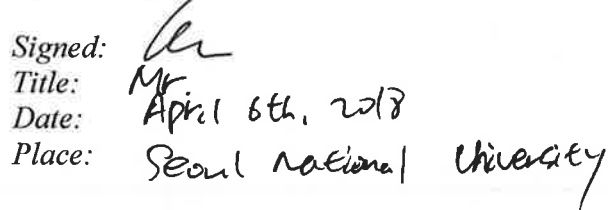 Signed:
Title: Mr
Date: April 6th, 2018
Place: Seoul National University